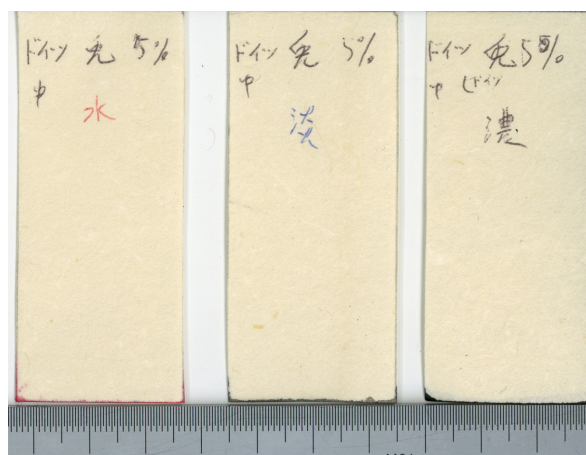 ドイツ 兎 5%
中
水
ドイツ 兎 5%
中
淡
ドイツ 兎 5%
中 ドイツ
濃